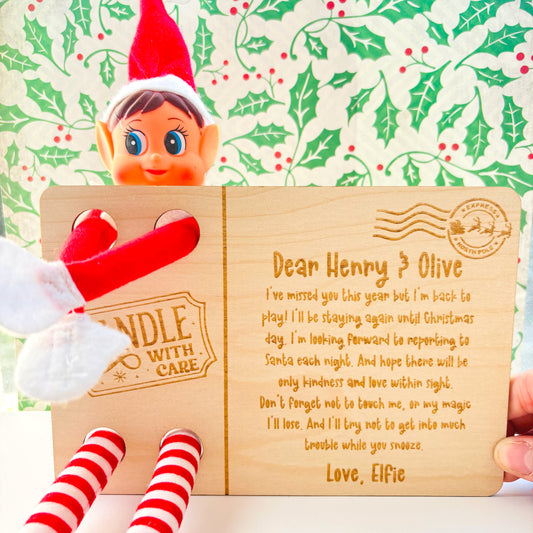 EXPRESS
NORTH POLE
Dear Henry & Olive
I've missed you this year but I'm back to
play! I'll be staying again until Christmas
day. I'm looking forward to reporting to
Santa each night. And hope there will be
only kindness and love within sight.
Don't forget not to touch me, or my magic
I'll lose. And I'll try not to get into much
trouble while you snooze.
Love, Elfie
WITH
CARE